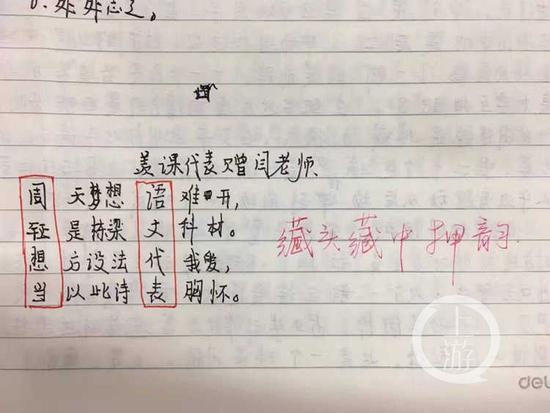 6. 处处志之。
课代表赠闫老师、
周天梦想语难开，
是栋梁文科材。
想方设法代我爱，
当以此诗表胸怀。
藏头藏中押韵.
上游